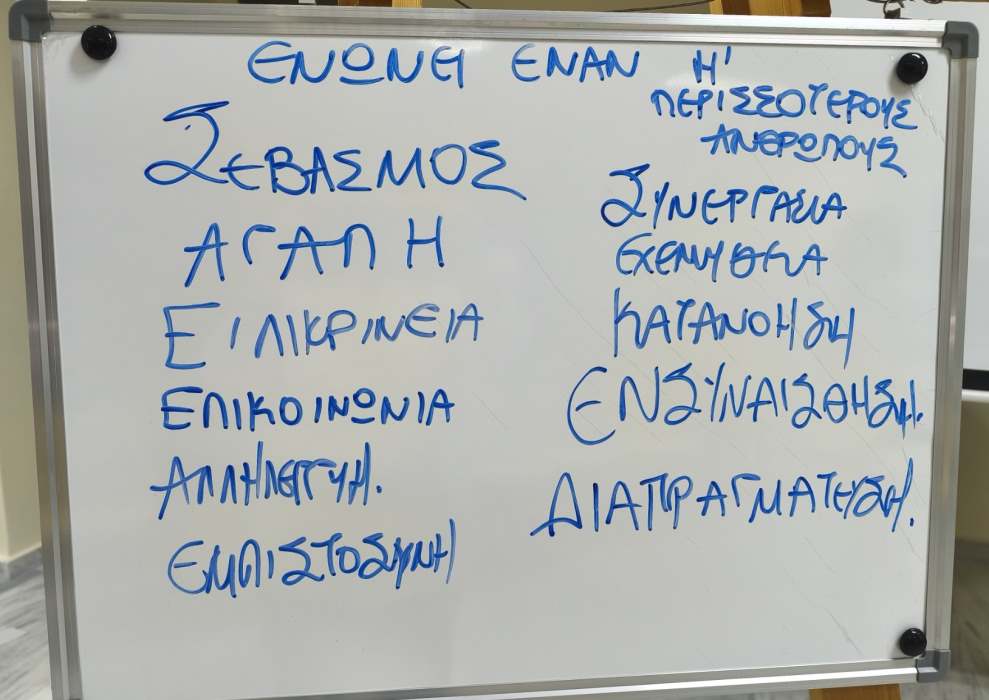 ΕΝΩΝΕΙ ΕΝΑΝ Η'
ΠΕΡΙΣΣΟΤΕΡΟΥΣ
ΑΝΘΡΩΠΟΥΣ
ΣΕΒΑΣΜΟΣ
ΑΓΑΠΗ
ΕΙΛΙΚΡΙΝΕΙΑ
ΕΠΙΚΟΙΝΩΝΙΑ
ΑΛΛΗΛΕΓΓΥΗ.
ΕΜΠΙΣΤΟΣΥΝΗ
ΣΥΝΕΡΓΑΣΙΑ
ΕΧΕΜΥΘΕΙΑ
ΚΑΤΑΝΟΗΣΗ
ΕΝΣΥΝΑΙΣΘΗΣΗ.
ΔΙΑΠΡΑΓΜΑΤΕΥΣΗ.